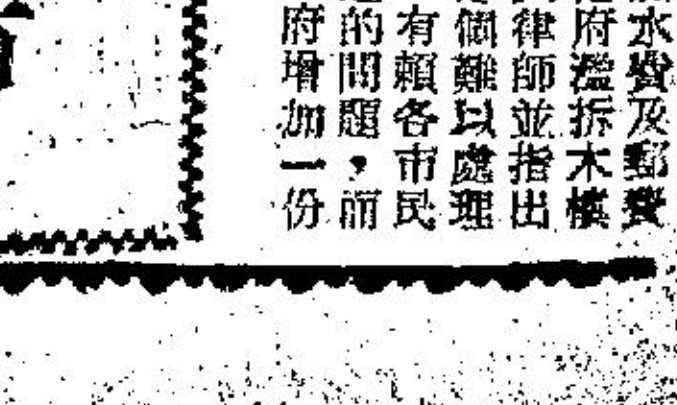 水費及郵費
府濫拆木樓
律師並指出
個難以處理
有賴各市民
的問題，而
府增加一份